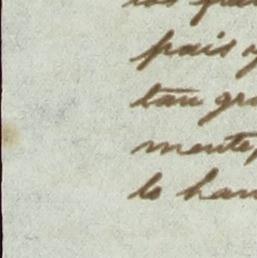 los
pais
tan gr
mente
lo han